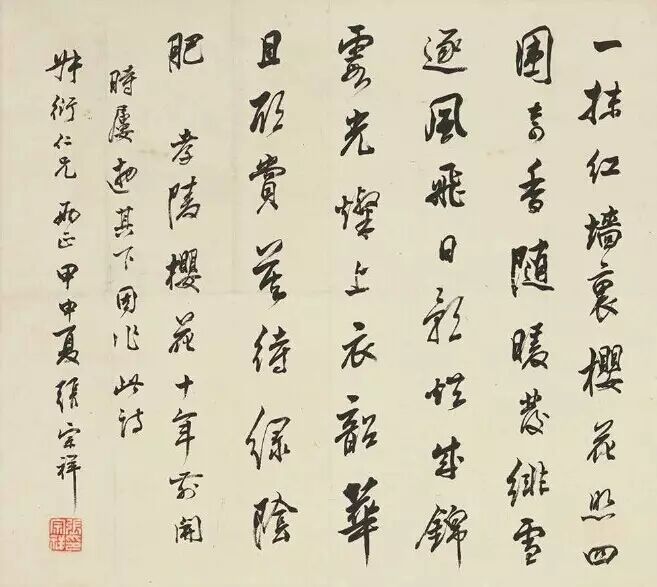 一抹红墙裏櫻花照四
圍高香随暖發绯雪
逐風飛日彩烘成錦
霞光燦上衣韶華
且欣賞莫待绿陰
肥 孝陵櫻花十年前開
時屢遊其下因作此詩
衍仁兄 正甲申夏張宗祥